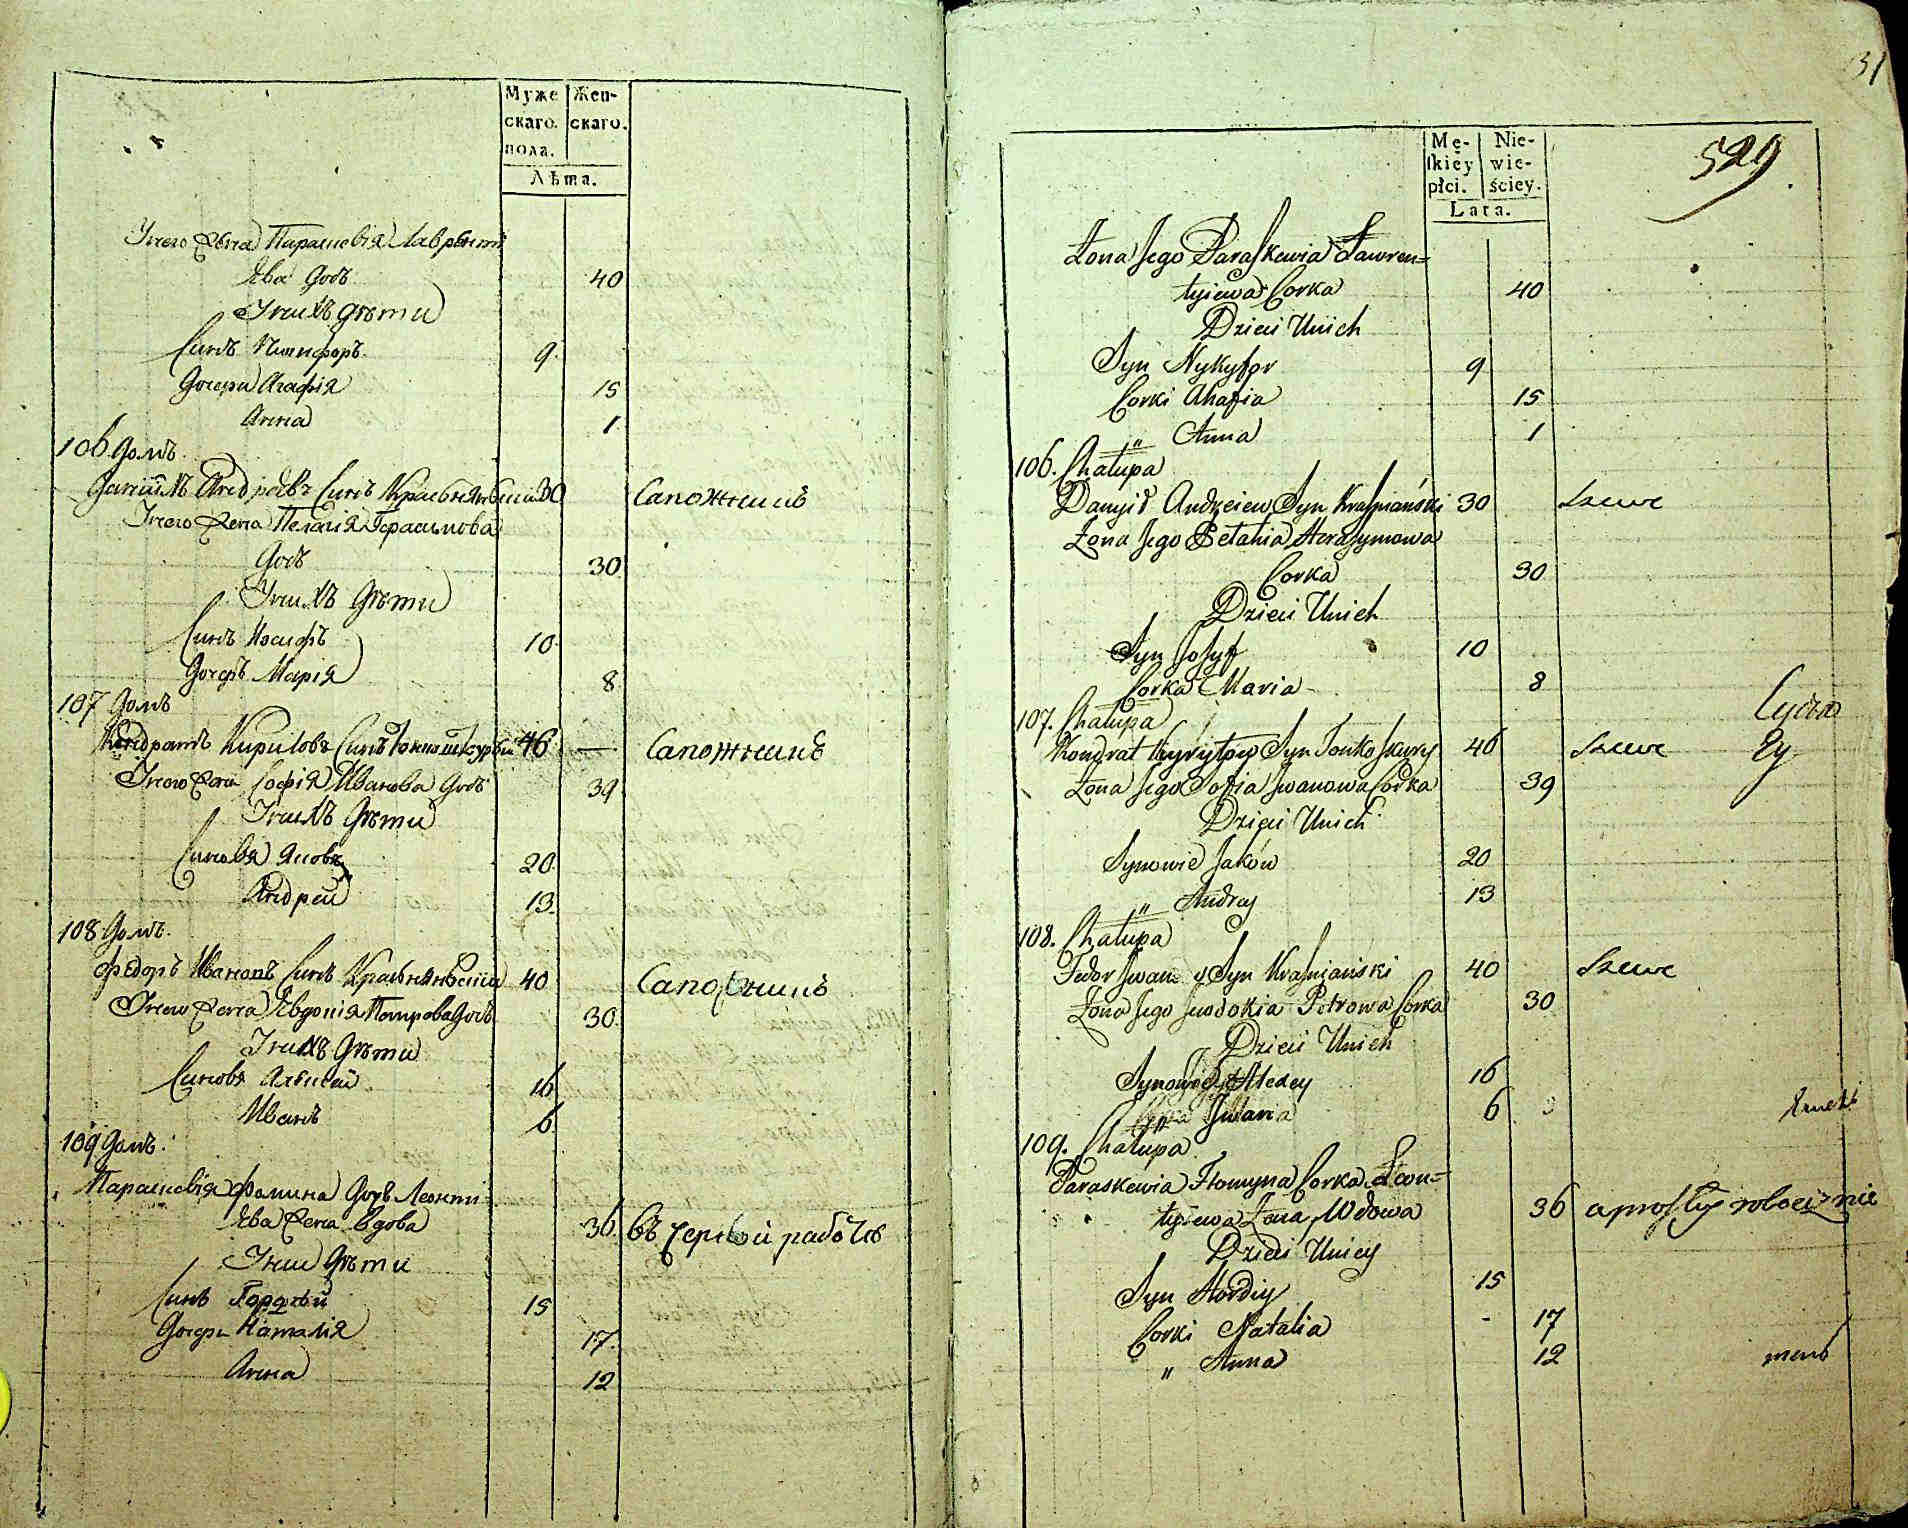 Муже
скаго.
пола.
Жен-
скаго.
Лѣта.
У него Жена Парасковія Лаврѣнті
ева дочь 40
У нихъ дѣти
Синъ Никифоръ 9
Дочери Агафія 15
Анна 1
106 Домъ
Данііилъ Андреевъ Синъ 30 Сапожникъ
У него Жена Пелагія Герасимова
Дочь 30
У нихъ Дѣти
Синъ Иосифъ 10
Дочерь Марія 8
107 Домъ
Кондратъ Кириловъ Синъ 46 — Сапожникъ
У него Жена Софія Иванова Дочь 39
У нихъ Дѣти
Синовя Яковъ 20
Андрей 13
108 Домъ
Федоръ Синъ 40 Сапожникъ
У него Жена Евдокія Петрова Дочь 30
У нихъ Дѣти
Синовя Алексѣй 16
Иванъ 6
109 Домъ
Парасковія Фомина Дочь Леонти
ева Жена Вдова 36 въ черной работѣ
У ней Дѣти
Синъ Гордѣй 15
Дочери Наталія 17
Анна 12
31
529
Mę-
skiéy
płci.
Nie-
wie-
ściey.
Lata.
Żona Jego Paraskewia Ławren-
tyiewa Corka 40
Dzieci Unich
Syn Nykyfor 9
Corki Ahafia 15
" Anna 1
106. Chałupa
Danyił Andreiew Syn Krasniański 30 Szewc
Żona Jego Pelahia Herasymowa
Corka 30
Dzieci Unich
Syn Josyf 10
Corka Maria 8
107. Chałupa
Kondrat Kyryłow Syn Tonkoskury 46 Szewc
Żona Jego Sofia Iwanowa Corka 39
Dzieci Unich
Synowie Jaków 20
" Andrey 13
108. Chałupa
Fedor Syn Krasniański 40 Szewc
Żona Jego Jewdokia Petrowa Corka 30
Dzieci Unich
Synowie 16
6
109. Chałupa
Paraskewia Homyna Corka Lewn=
tyiewa Żona Wdowa 36 w prostey robociznie
Dzieci Uniey
Syn Hordiy 15
Corki Natalia - 17
" Anna 12